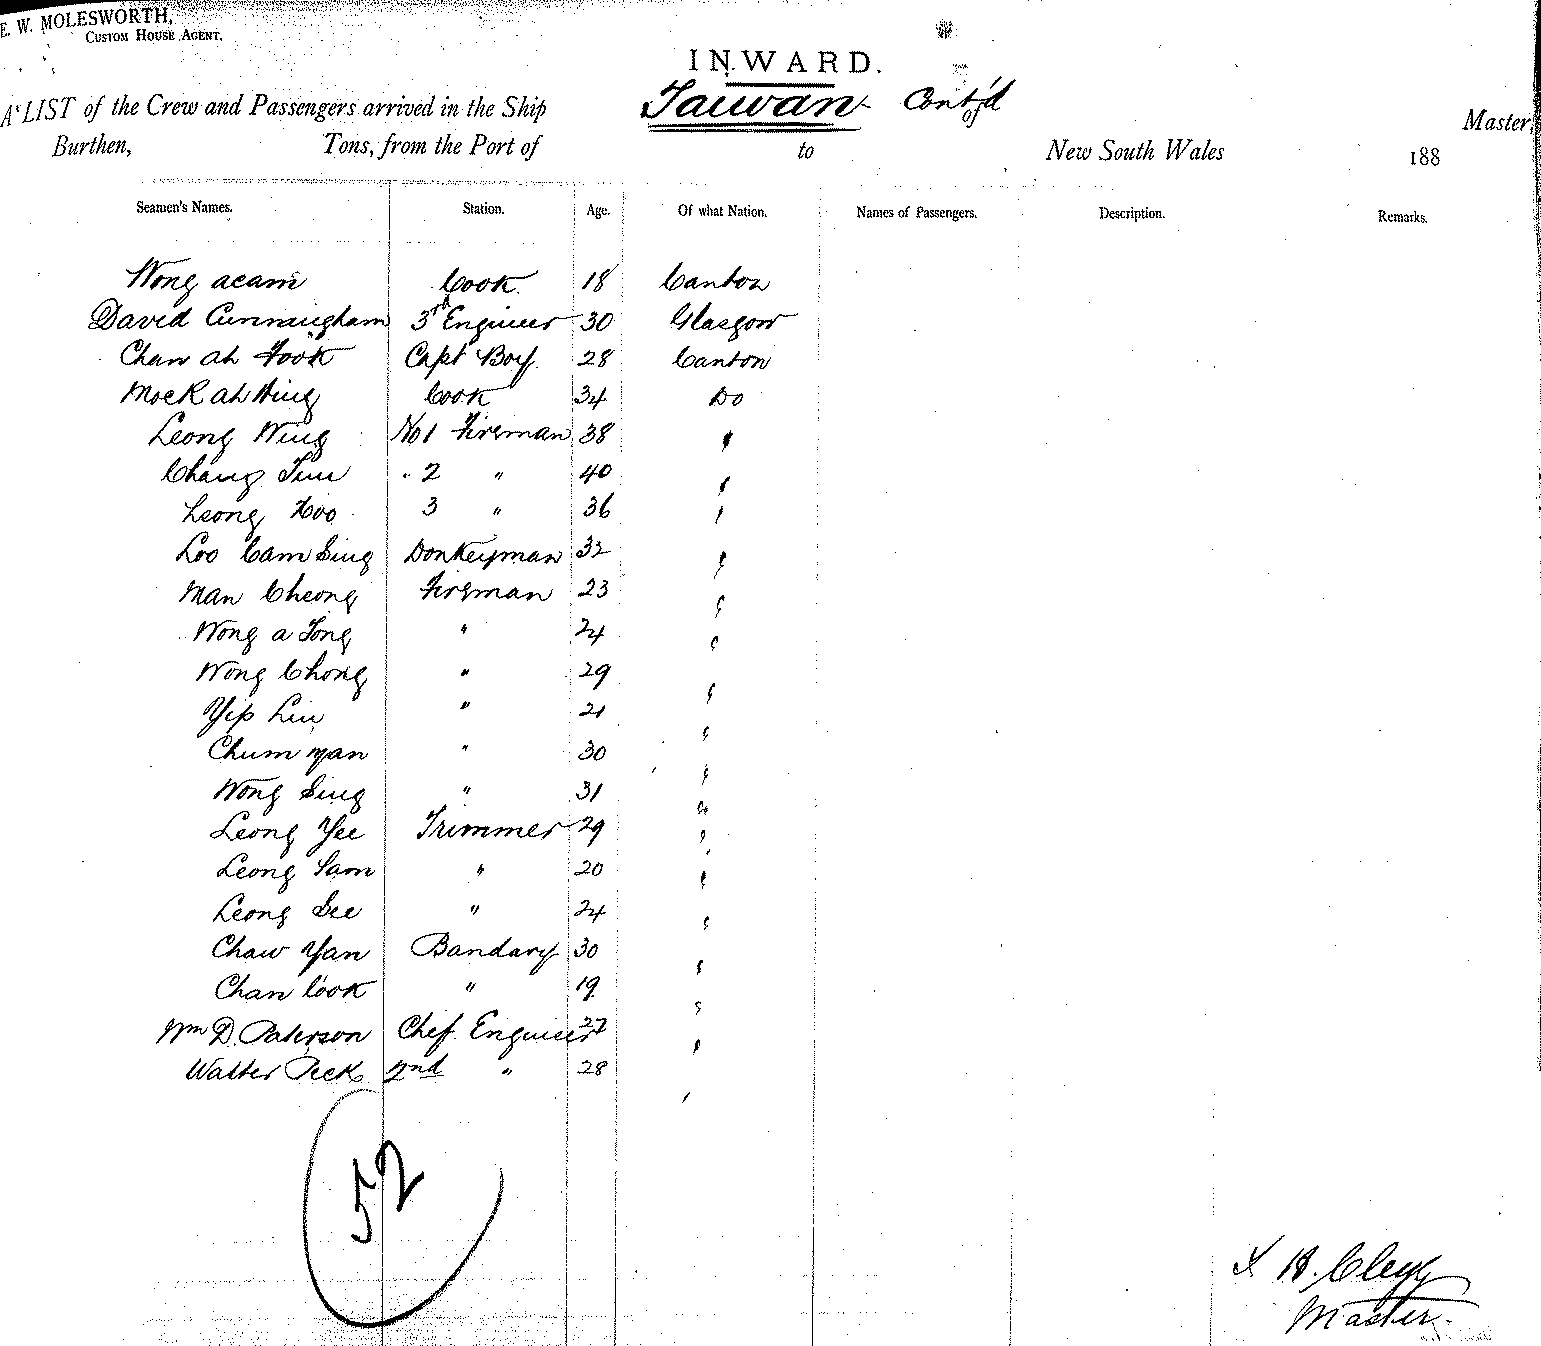 E. W. MOLESWORTH,
CUSTOM HOUSE AGENT.
INWARD.
A LIST of the Crew and Passengers arrived in the Ship Taiwan Cont'd Master,
Burthen, Tons, from the Port of to New South Wales 188
Seamen's Names. Station. Age. Of what Nation. Names of Passengers. Description. Remarks.
Wong acam Cook 18 Canton
David Cunningham 3rd Engineer 30 Glasgow
Chan ah Fook Capt Boy 28 Canton
Mock ah Hing Cook 34 Do
Leong Wing No 1 Fireman 38 "
Chang Tim " 2 " 40 "
Leong Koo 3 " 36 "
Loo Cam Sing Donkeyman 32 "
Man Cheong Fireman 23 "
Wong a Tong " 24 "
Wong Chong " 29 "
Yip Liu " 21 "
Chum yan " 30 "
Wong Sing " 31 "
Leong Yee Trimmer 29 "
Leong Sam " 20 "
Leong See " 24 "
Chaw Yan Bandary 30 "
Chan Cook " 19 "
Wm D. Paterson Chef Engineer 27 "
Walter Peck 2nd " 28 "
52
H.
Master